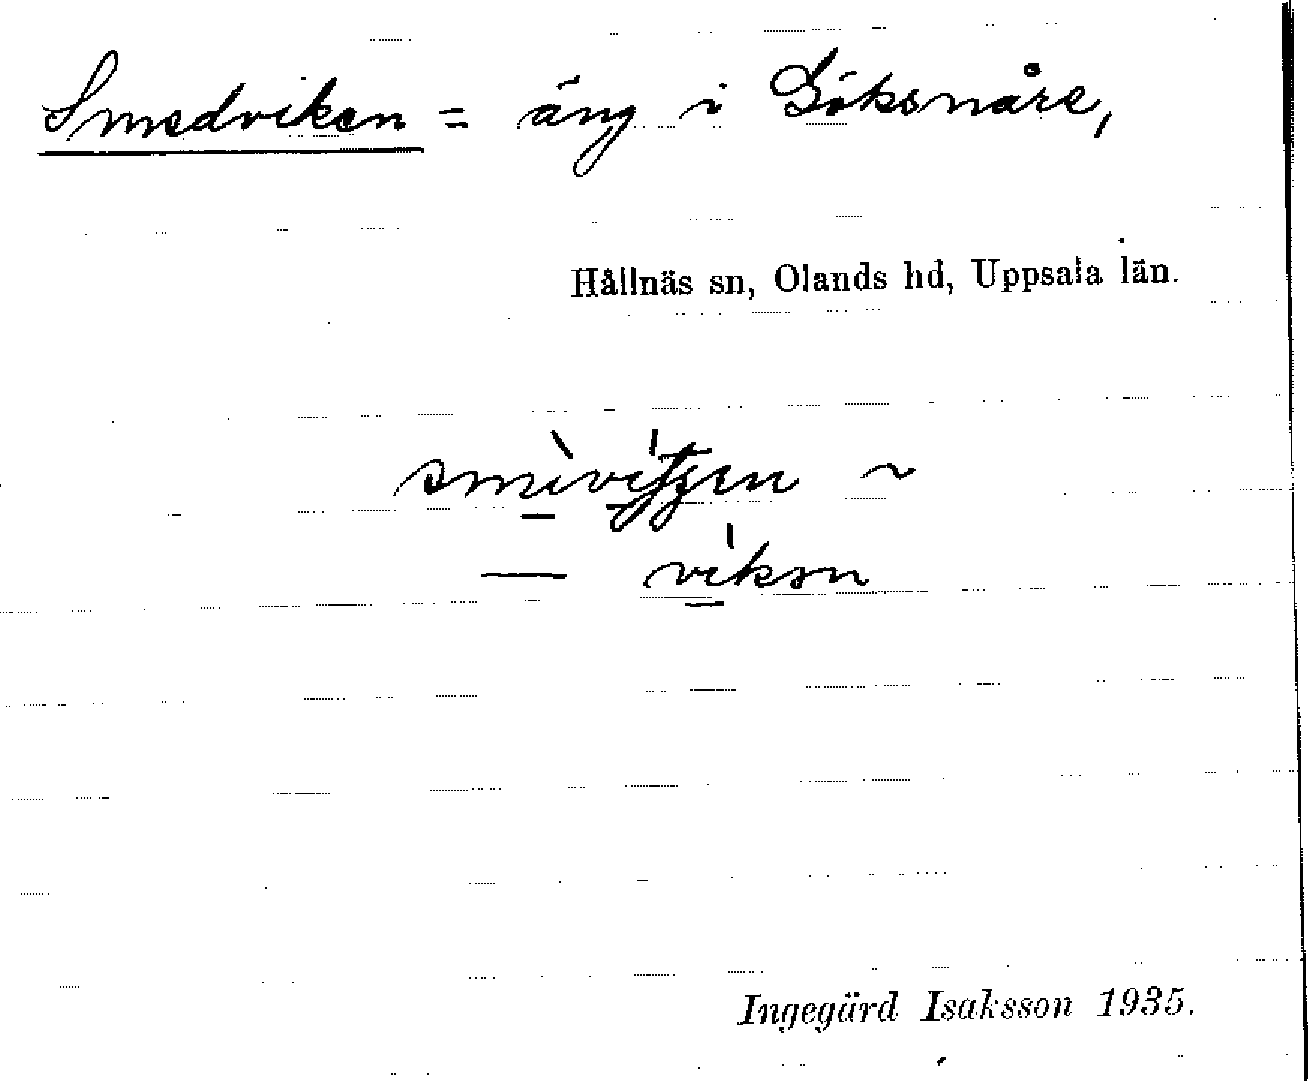 Smedviken = äng i Böksnåre,
Hållnäs sn, Olands hd, Uppsala län.
— vikən
Ingegärd Isaksson 1935.